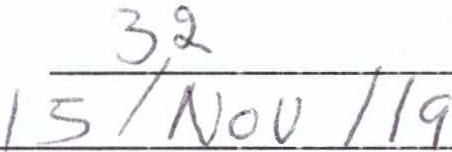 32
15/NOV/19